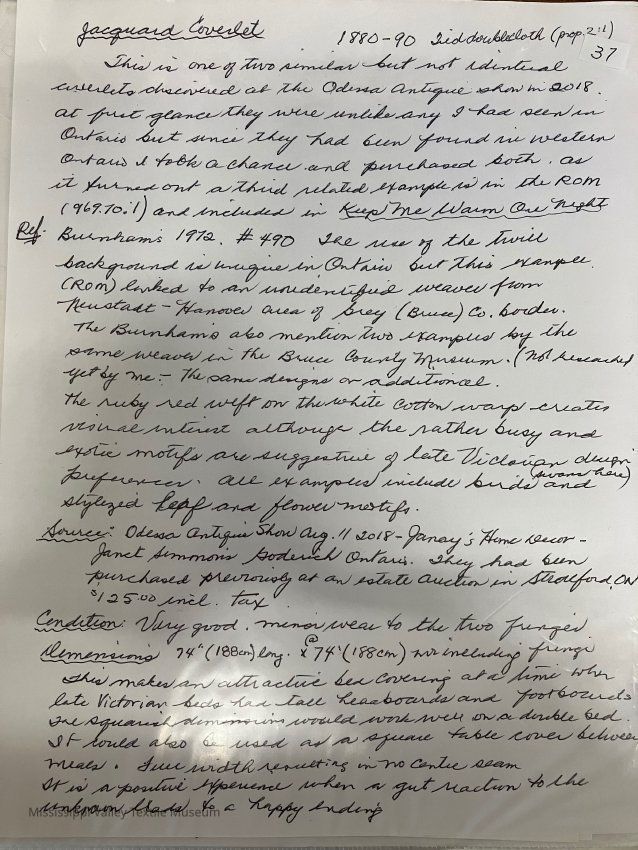 Jacquard Coverlet 1880-90 Tied doublecloth (prop. 2:1)
37
This is one of two similar but not identical
coverlets discovered at the Odessa Antique show in 2018.
At first glance they were unlike any I had seen in
Ontario but since they had been found in western
Ontario I took a chance and purchased both. As
it turned out a third related example is in the ROM
(969.70.1) and included in Keep Me Warm One Night
Ref. Burnham's 1972. #490 The use of the twill
background is unique in Ontario but this example
(ROM) linked to an unidentified weaver from
Neustadt - Hanover area of Grey (Bruce) Co. border.
The Burnhams also mention two examples by the
same weaver in the Bruce County Museum. (Not researched
yet by me - The same designs or additional.
The ruby red weft on the white cotton warp creates
visual interest although the rather busy and
exotic motifs are suggestive of late Victorian design
preferences. All examples include birds (swans here) and
stylized leaf and flower motifs.
Source: Odessa Antique Show Aug. 11 2018 - Janay's Home Decor -
Janet Simmons Goderich Ontario. They had been
purchased previously at an estate auction in Stratford, ON
$125.00 incl. tax
Condition: Very good. minor wear to the two fringes
Dimensions 74" (188cm) long. x @ 74" (188cm) not including fringe
This makes an attractive bed covering at a time when
late Victorian beds had tall headboards and footboards
The squarish dimensions would work well on a double bed.
It could also be used as a square table cover between
meals. Full width resulting in no centre seam
It is a positive experience when a gut reaction to the
unknown leads to a happy ending
Mississippi Valley Textile Museum